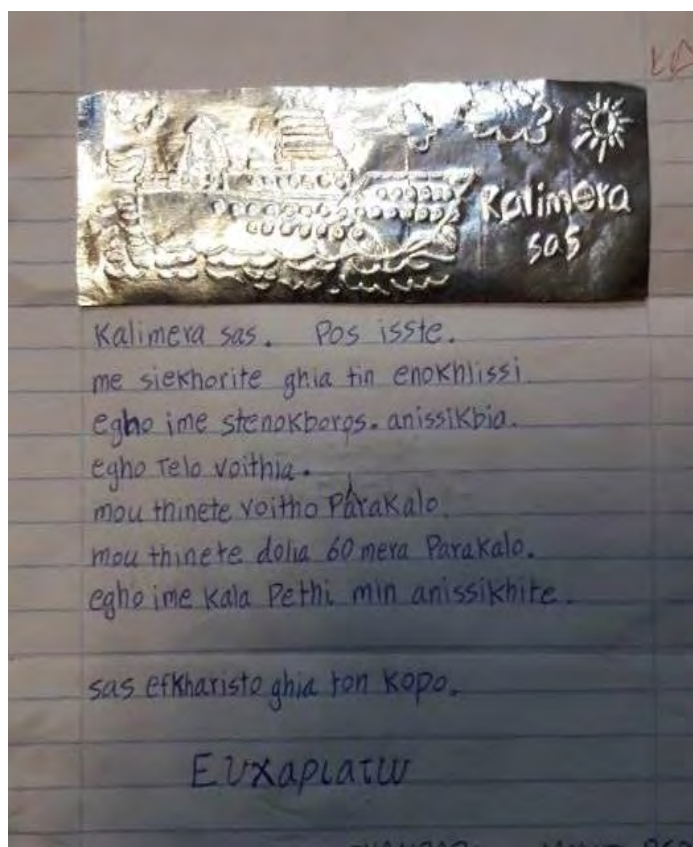 Kalimera
sas
Kalimera sas. Pos isste.
me siekhorite ghia tin enokhlissi
egho ime stenokboros. anissikbia.
egho Telo voithia.
mou thinete voitho Parakalo.
mou thinete dolia 60 mera Parakalo.
egho ime kala Pethi min anissikhite.
sas efkharisto ghia ton kopo.
Ευχαριατω